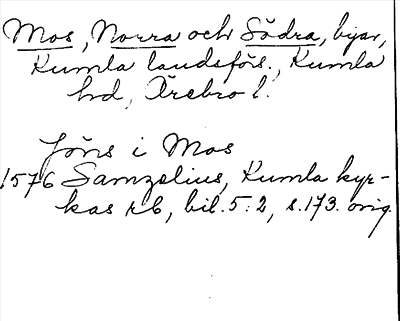 Mos, Norra och Södra, byar,
Kumla landsförs., Kumla
hd, Örebro l.
Jöns i Mos
1576 Samzelius, Kumla kyr-
kas rb, bil. 5:2, s. 173. orig.